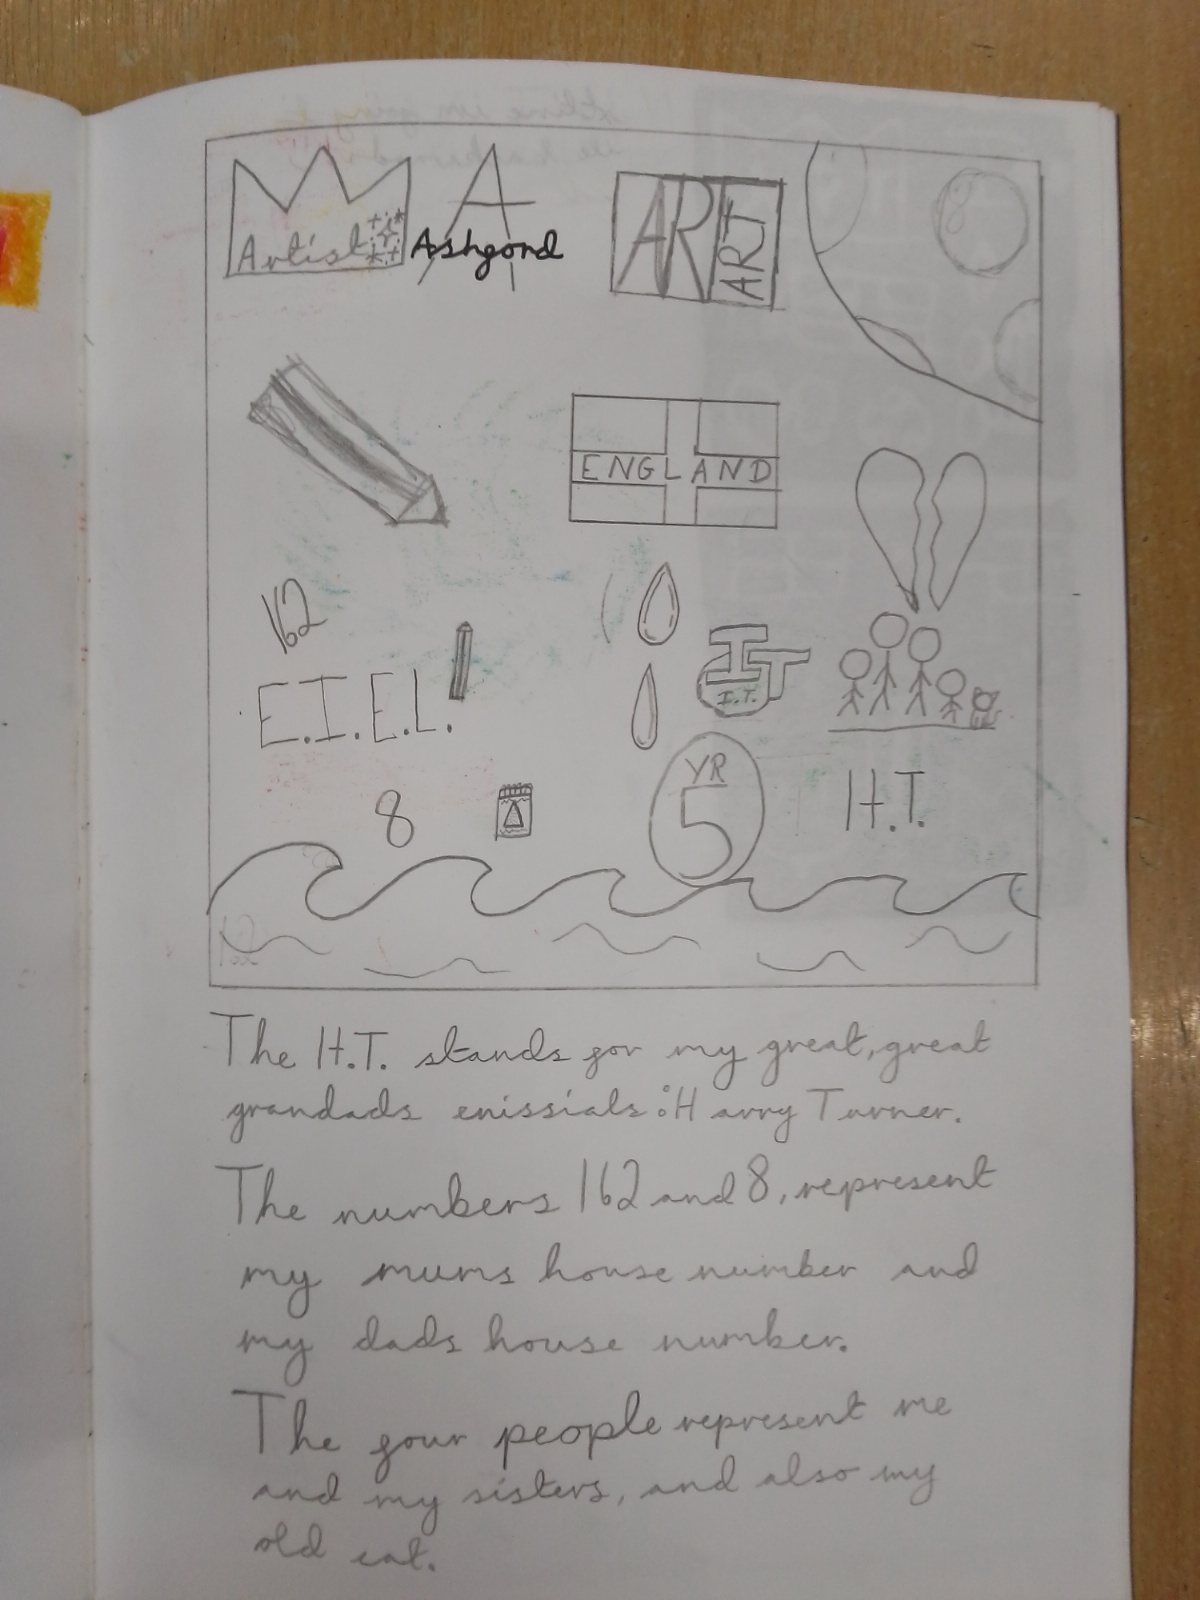 Artist
A
Ashford
ART
ART
ENGLAND
162
E.I.E.L.
IT
I.T.
8
YR
5
H.T.
The H.T. stands for my great, great
grandads enissials: Harry Turner.
The numbers 162 and 8, represent
my mums house number and
my dads house number.
The four people represent me
and my sisters, and also my
old cat.